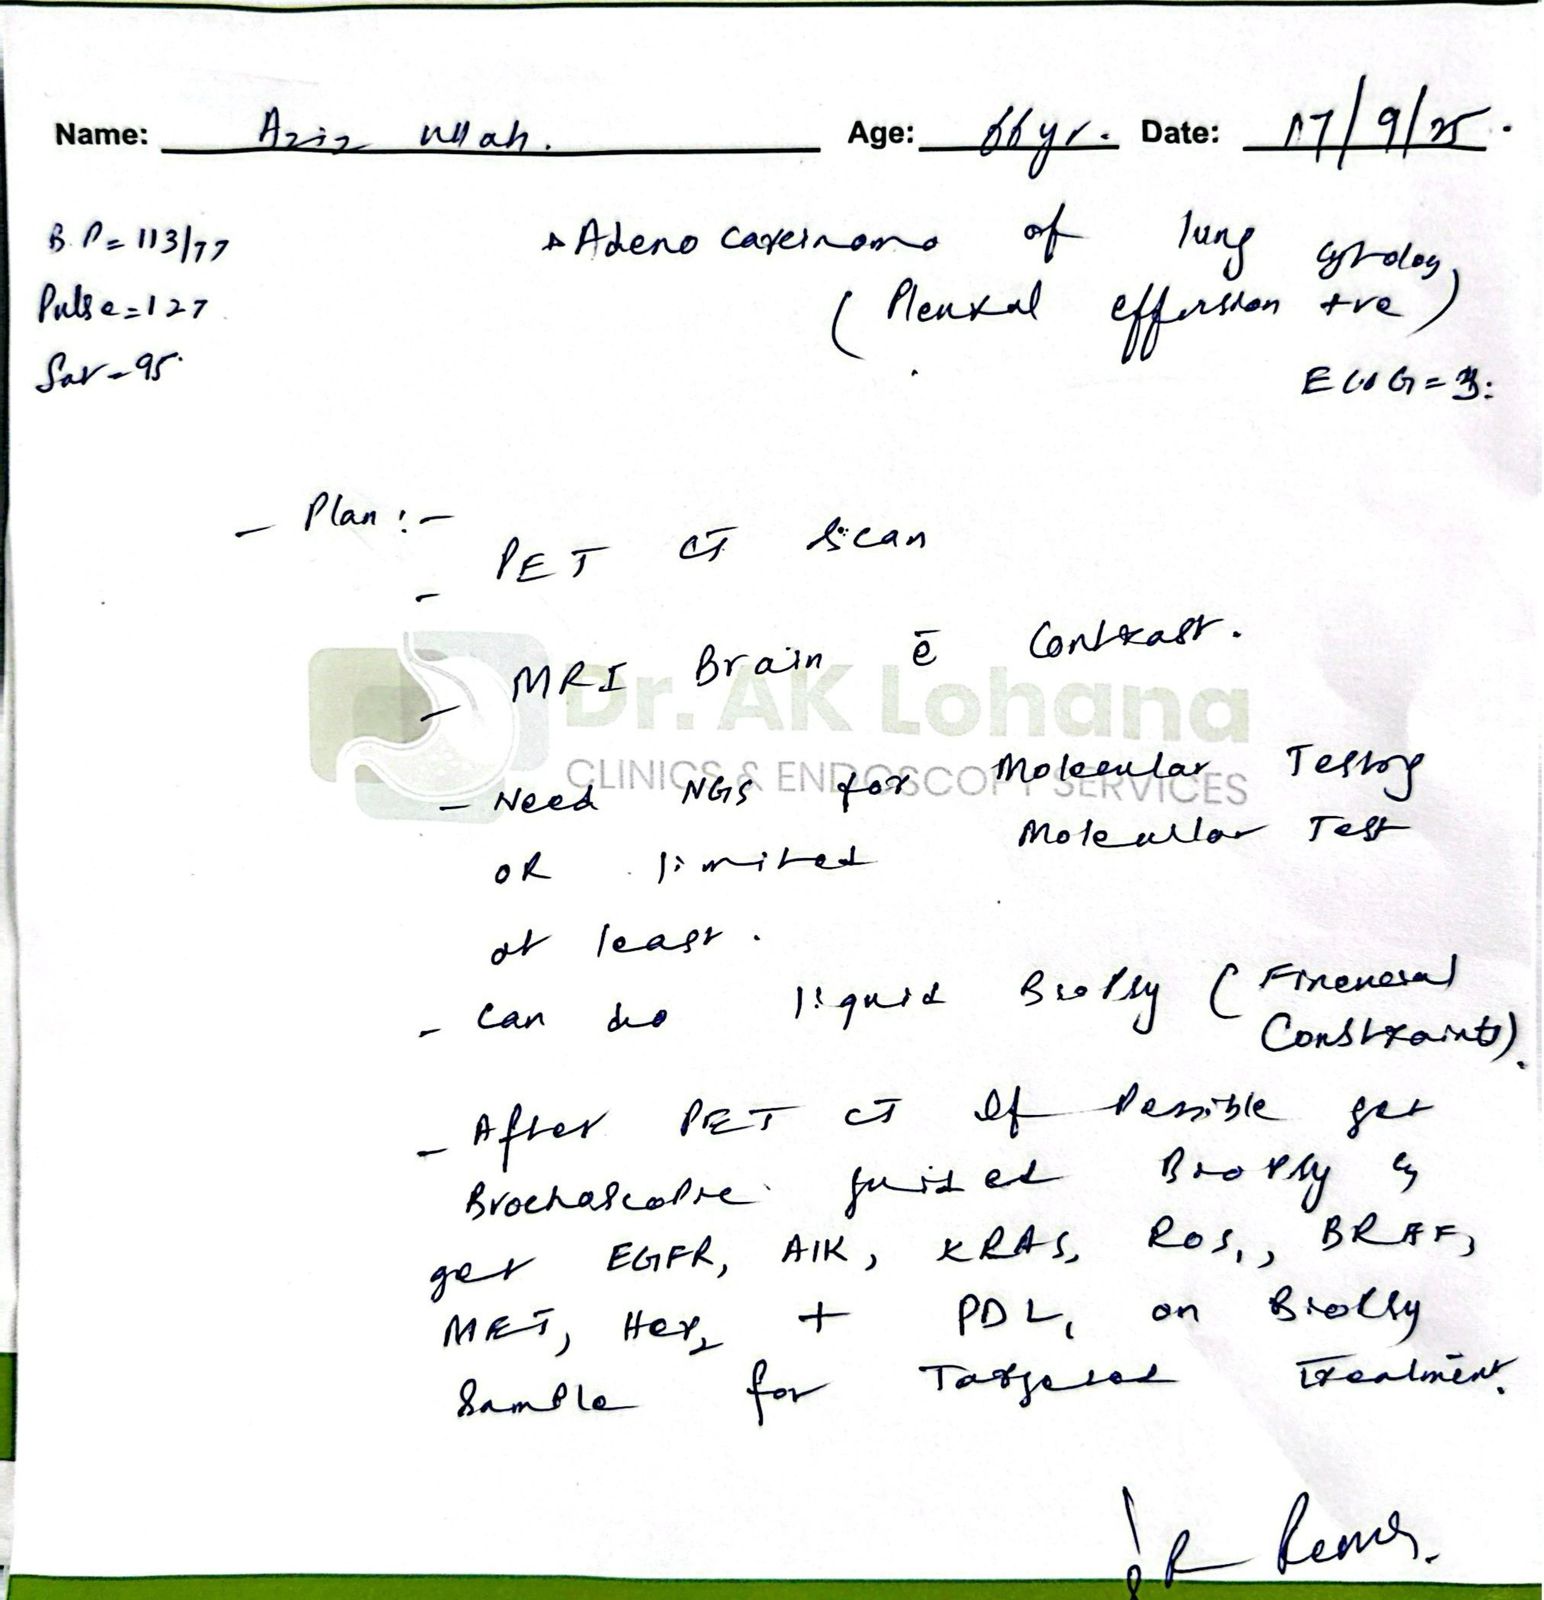 Name: Aziz ullah. Age: 66yr. Date: 17/9/25.
B.P = 113/77
Pulse = 127
Sat - 95
Adeno carcinoma of lung
(Pleural effusion cytology +ve)
ECOG = 3
- Plan :-
- PET CT Scan
- MRI Brain c̄ Contrast.
Dr. AK Lohana
CLINICS & ENDOSCOPY SERVICES
- Need NGS for Molecular Testing
OR limited Molecular Test
at least.
- Can do liquid Biopsy (Financial
Constraints).
- After PET CT If Possible get
Brochoscopic guided Biopsy &
get EGFR, AlK, KRAS, ROS1, BRAF,
MET, Her2 + PDL1 on Biopsy
Sample for Targeted Treatment.